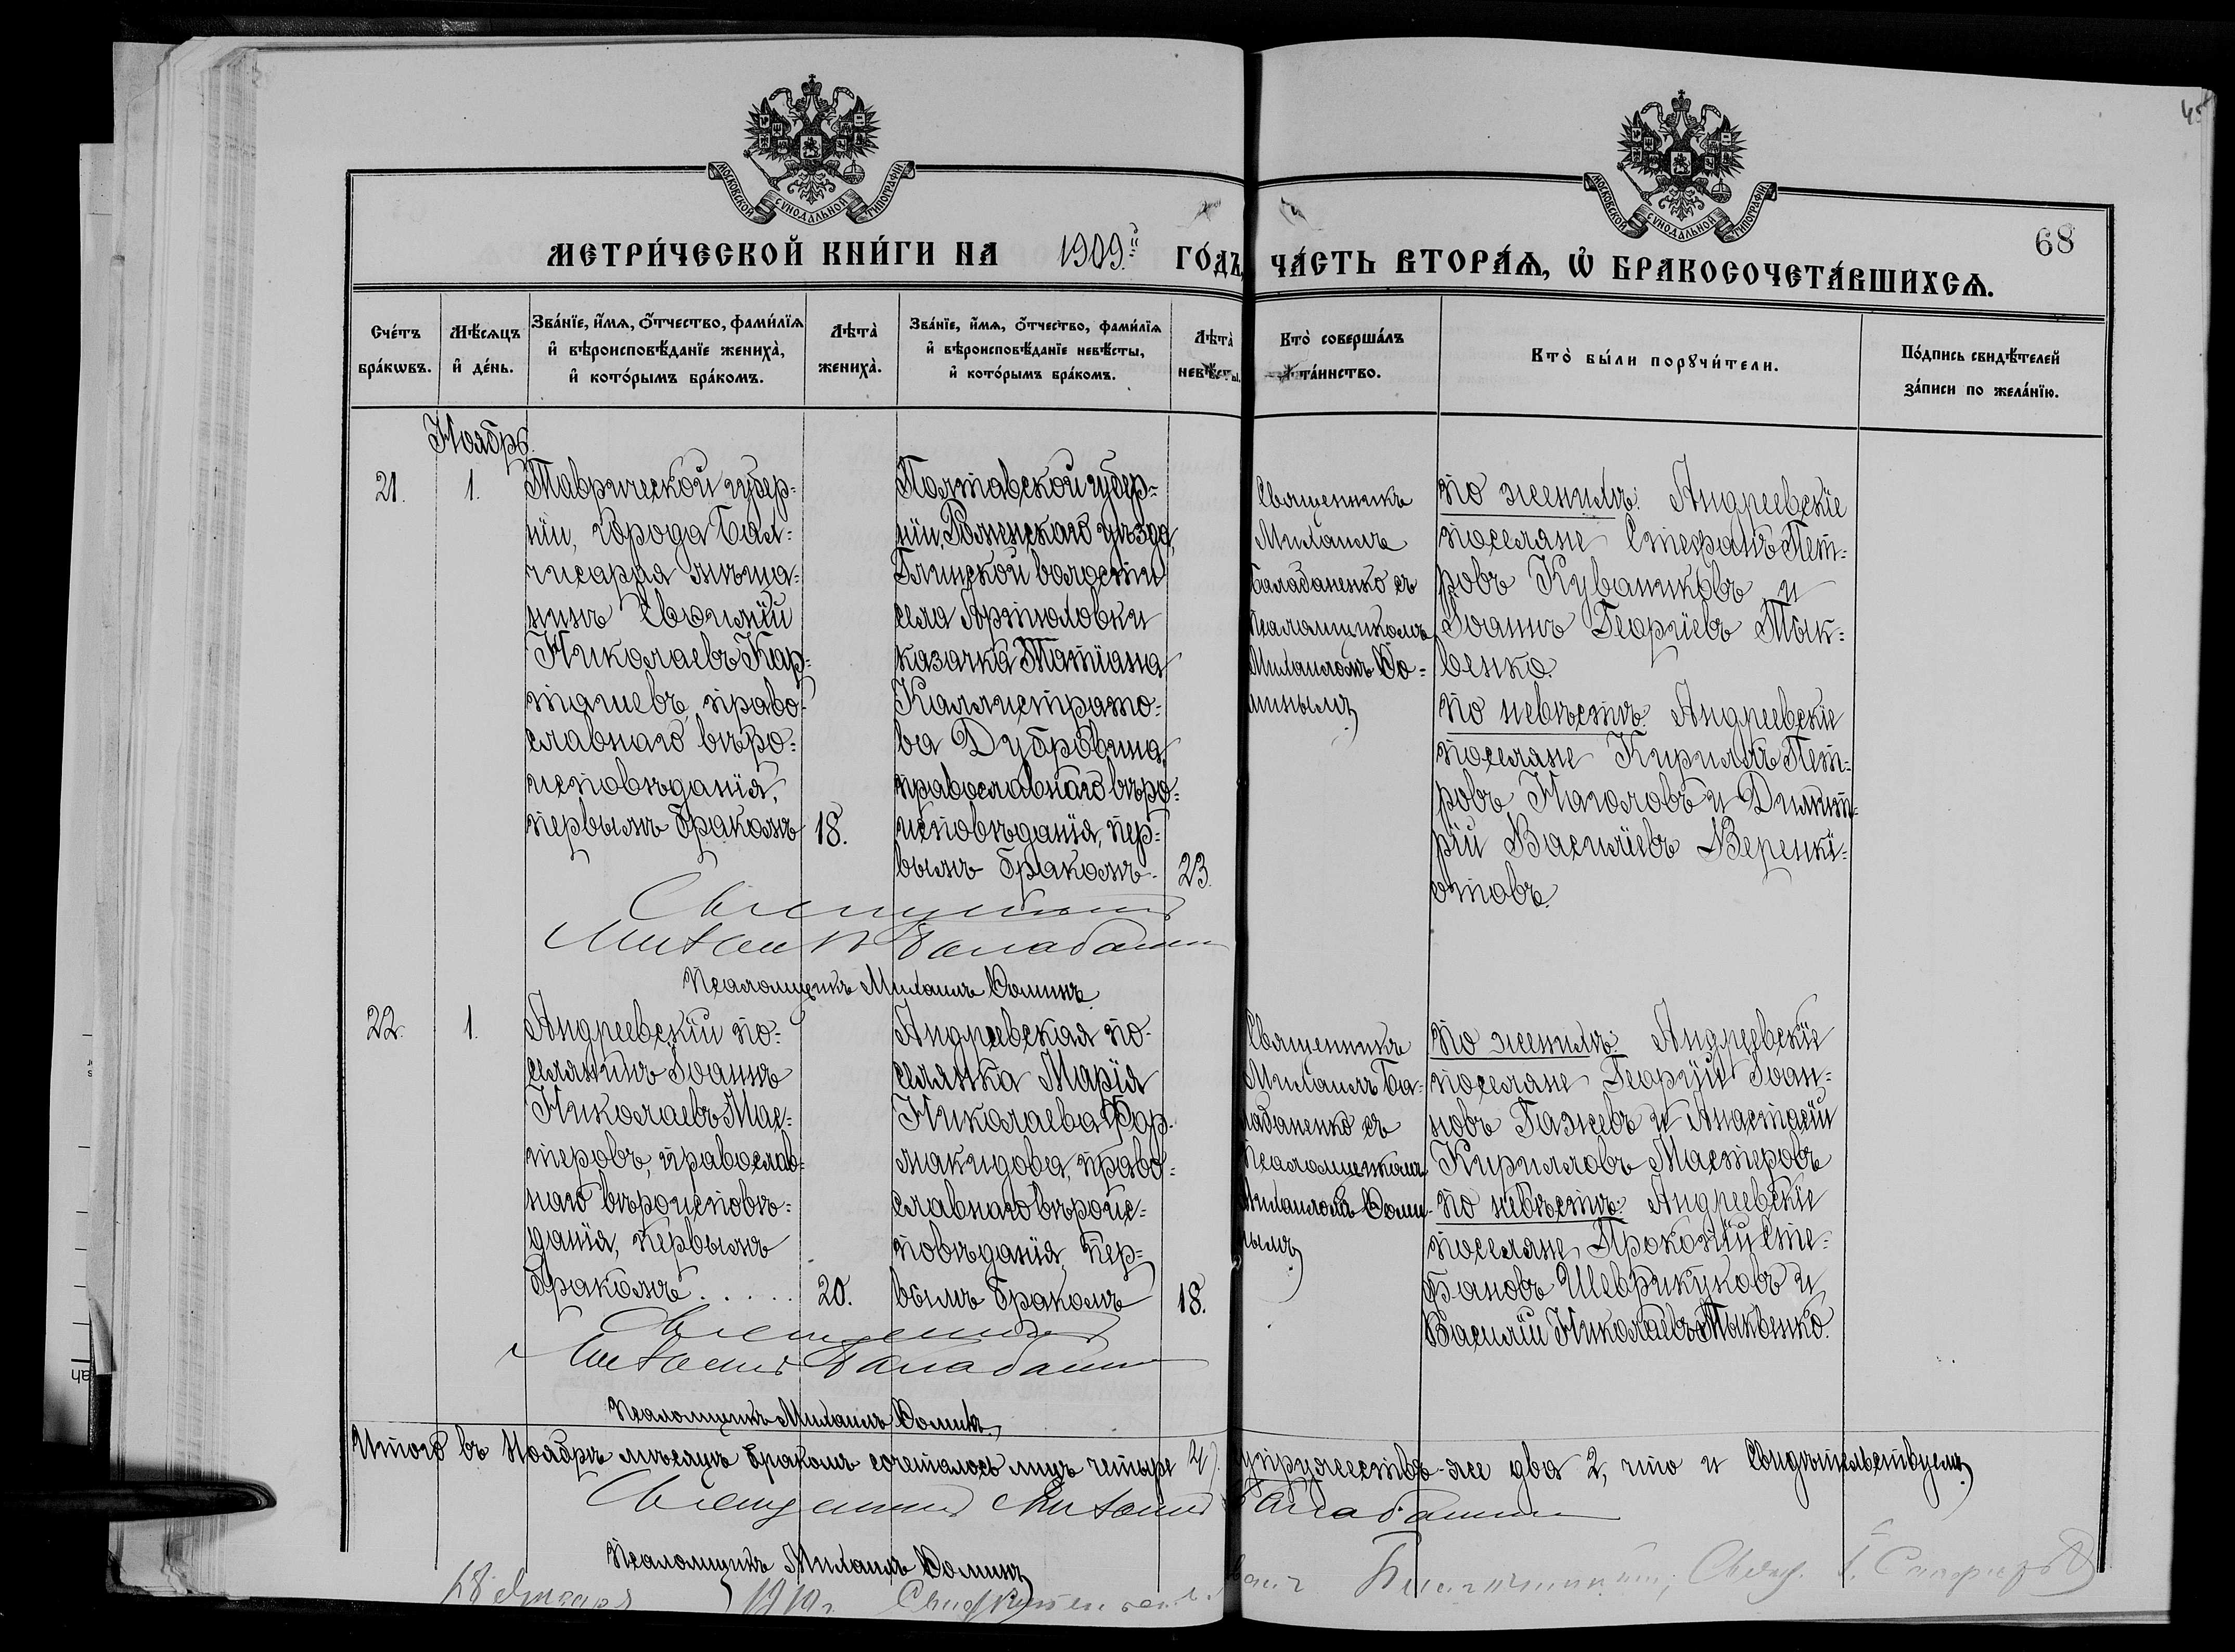 45
МОСКОВСКОЙ СѴНОДАЛЬНОЙ ТИПОГРАФІИ.
МОСКОВСКОЙ СѴНОДАЛЬНОЙ ТИПОГРАФІИ.
68
МЕТРИ́ЧЕСКОЙ КНИ́ГИ НА 1909.й ГО́ДЪ, ЧА́СТЬ ВТОРА́Ѧ, Ѡ҆ БРАКОСОЧЕТА́ВШИХСѦ.
Счéтъ бра́кѡвъ.
Мѣ́сѧцъ и҆ де́нь.
Зва́нїе, и҆́мѧ, ѻ҆́тчество, фами́лїѧ
и҆ вѣроисповѣ́данїе жениха̀,
и҆ кото́рымъ бра́комъ.
Лѣта̀ жениха̀.
Зва́нїе, и҆́мѧ, ѻ҆́тчество, фами́лїѧ
и҆ вѣроисповѣ́данїе невѣ́сты,
и҆ кото́рымъ бра́комъ.
Лѣта̀ невѣ́сты.
Кто̀ соверша́лъ та́инство.
Кто̀ бы́ли порꙋчи́тели.
По́дпись свидѣ́телей
за́писи по жела́нїю.
Ноябрь.
21.
1.
Таврической губер-
ніи, города Бах-
чисарая мѣща-
нинъ Евѳимій
Николаевъ Кар-
ташевъ, право-
славнаго вѣро-
исповѣданія,
первымъ бракомъ
18.
Полтавской губер-
ніи, Роменскаго уѣзда,
Глинской волости
села Артюловки
казачка Татіана
Каллистрато-
ва Дубровина,
православнаго вѣро-
исповѣданія, пер-
вымъ бракомъ
23.
Священникъ
Михаилъ
Балабаненко съ
псаломщикомъ
Михаиломъ Ѳо-
минымъ
по женихѣ: Андреевскіе
поселяне Стефанъ Пет-
ровъ Куванжовъ и
Іоаннъ Георгіевъ Тык-
венко.
по невѣстѣ: Андреевскіе
поселяне Кириллъ Пет-
ровъ Наголовъ и Димит-
рій Василіевъ Веренкі-
отовъ.
Священникъ
Михаилъ Балабаненко
Псаломщикъ Михаилъ Ѳоминъ
22.
1.
Андреевскій по-
селянинъ Іоаннъ
Николаевъ Мас-
теровъ, православ-
наго вѣроисповѣ-
данія, первымъ
бракомъ . . . . .
20.
Андреевская по-
селянка Марія
Николаева Фар-
макидова, право-
славнаго вѣроис-
повѣданія, пер-
вымъ бракомъ
18.
Священникъ
Михаилъ Ба-
лабаненко съ
псаломщикомъ
Михаиломъ Ѳоми-
нымъ
по женихѣ: Андреевскіе
поселяне Георгій Іоан-
новъ Гажевъ и Анастасій
Кирилловъ Мастеровъ
по невѣстѣ: Андреевскіе
поселяне, Прокопій Сте-
фановъ Шеврикуковъ и
Василій Николаевъ Тыквенко.
Священникъ
Михаилъ Балабаненко
Псаломщикъ Михаилъ Ѳоминъ
Итого въ Ноябрѣ мѣсяцѣ бракомъ сочеталось лицъ четыре 4, супружествъ-же два 2, что и свидѣтельствуемъ
Священникъ Михаилъ Балабаненко
Псаломщикъ Михаилъ Ѳоминъ
28 Января 1910 г.